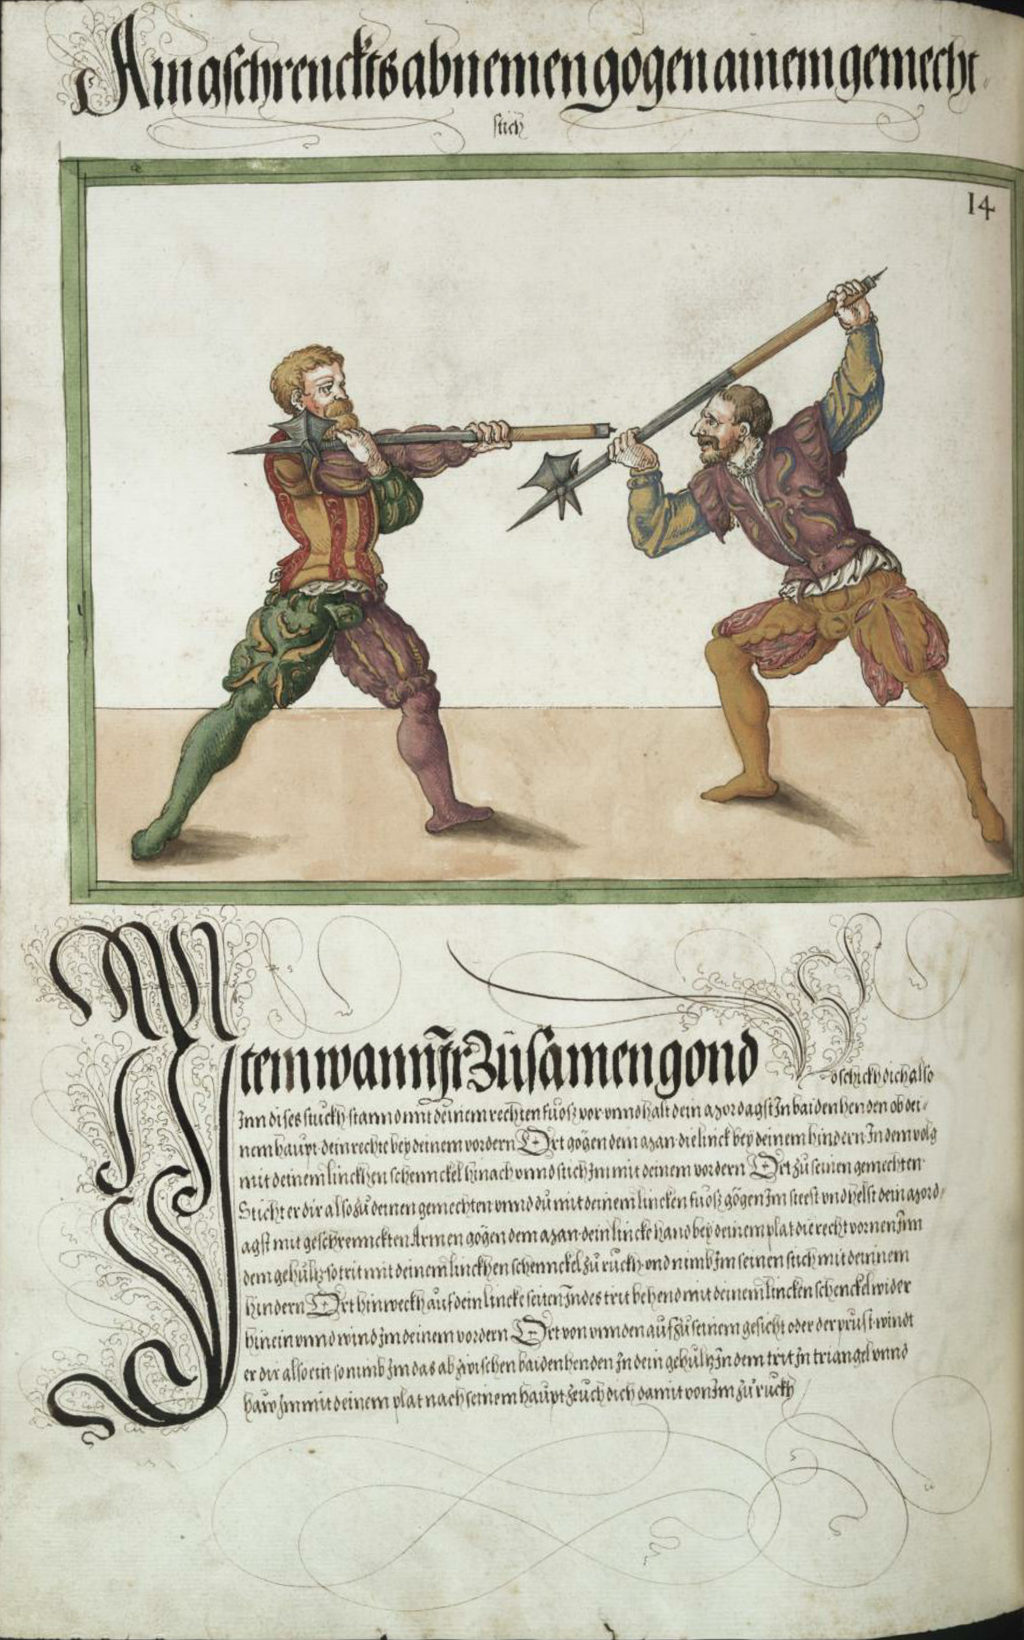 Ain gschrenckts abnemen gogen ainem gemecht
stich
14
Item wann Ir Zusamen gond So schickh dich also
Inn dises stuckh stannd mit deinem rechten fuosz vor vnnd halt dein mordagst In baiden henden ob dei-
nem haupt dein rechte bey deinem vordern Ort gögen dem man die linck bey deinem hindern In dem volg
mit deinem linckhen schennckel hinach vnnd stich Im mit deinem vordern Ort zu seinen gemechten
Sticht er dir also zu deinen gemechten vnnd du mit deinem lincken fuosz gögen Im steest vnd helst dein mord-
agst mit geschrennckten Armen gögen dem man dein lincke hand bey deinem plat die recht vornen Inn
dem gehultz so trit mit deinem linckhen schennckel zu ruckh vnd nimb Im seinen stich mit deinnem
hindern Ort hinweckh auf dein lincke seiten Indes trit behend mit deinem lincken schenckel wider
hinein vnnd wind Im deinem vordern Ort von vnnden auf zu seinem gesicht oder der prust windt
er dir also ein so nimb Im das ab zwischen baiden henden In dein gehultz In dem trit In triangel vnnd
haw Im mit deinem plat nach seinem haupt zeuch dich damit von Im zu ruckh